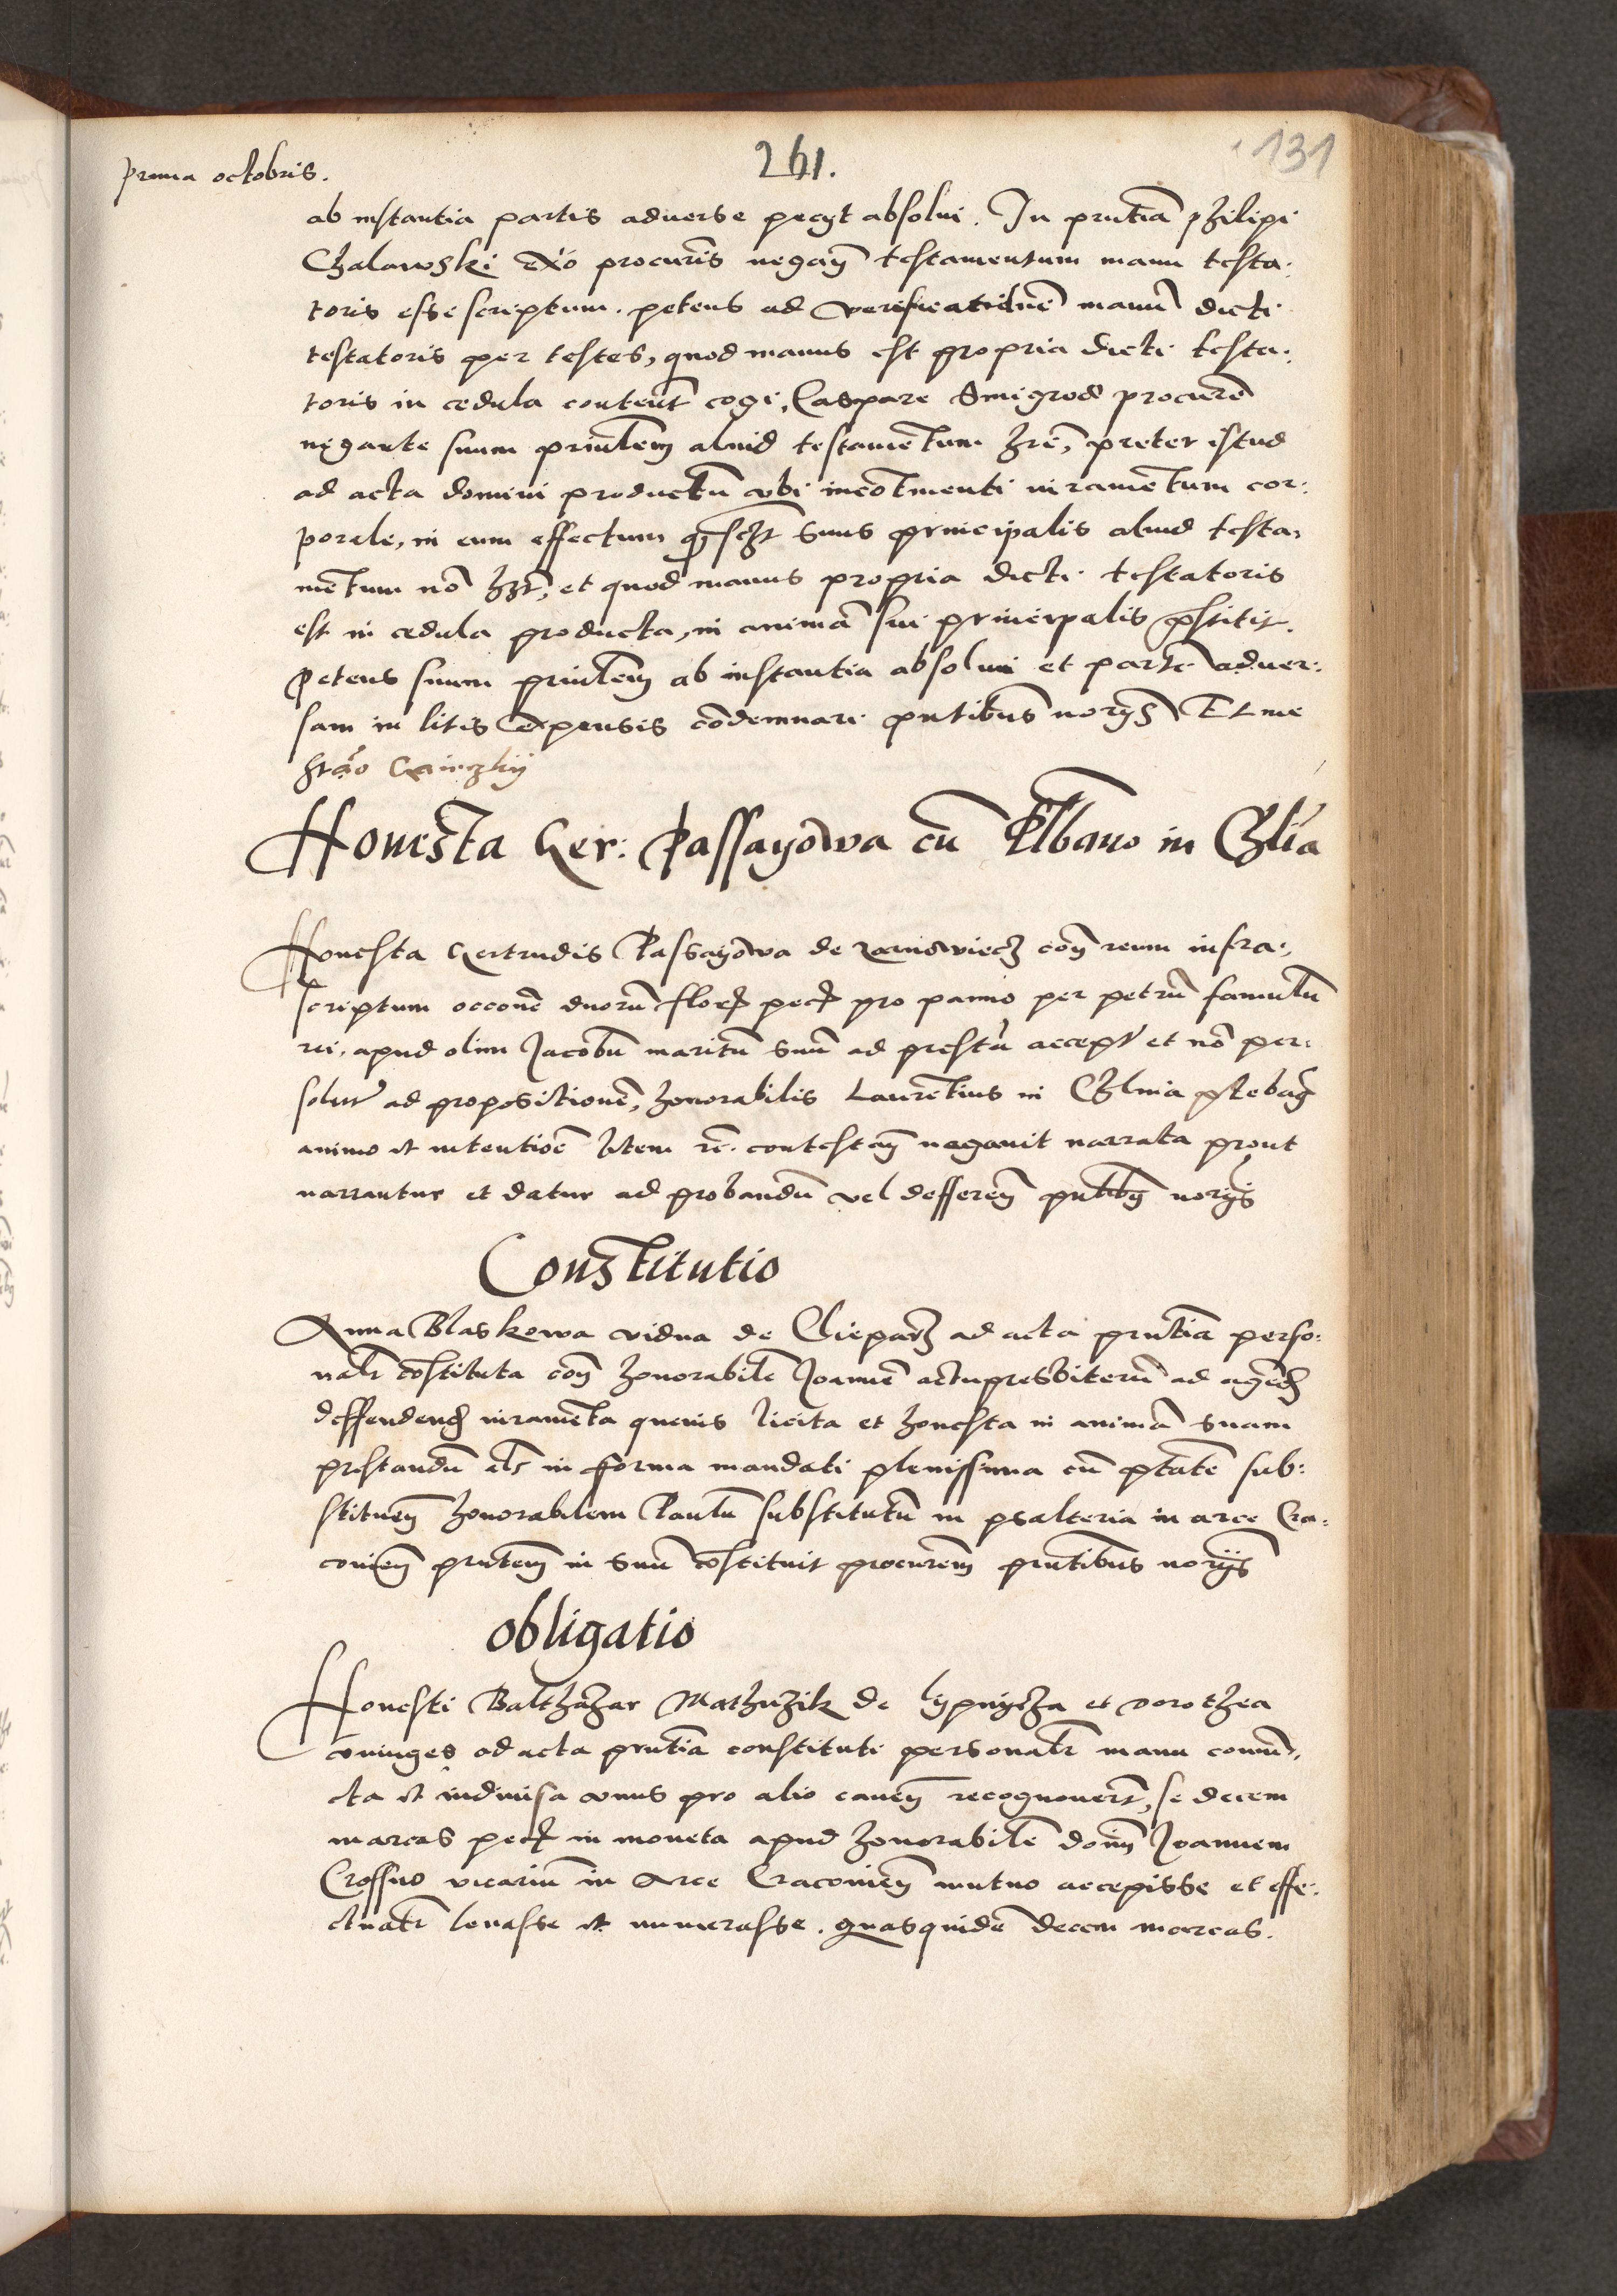 prima octobris.
261.
131
ab instantia partis adverse pecyt absolvi. In pñtia philipi
Chalawski ex͠o procur̃is negañ testamentum manu testa:
toris esse scriptum. petens ad verificatione͂ manu͂ dicti
testatoris per testes, quod manus est propria dicti testa:
toris in cedula content͂ cogi, Caspare Smigrod procure͂
negante suum prin͂lem aliud testame͂tum h͂re, preter istud
ad acta domini productu͂ ubi inco͂tinenti iurame͂tum cor:
porale, in eum effectum suus principalis aliud testa:
me͂tum no͂ et quod manus propria dicti testatoris
est in cedula producta, in anima͂ sui principalis p͂stitit.
Petens suum prin͂lem ab instantia absolvi et parte͂ adver:
sam in litis expensis co͂demnari pn͂tibus nor͂ys Et me
Honesta Ger: Passayowa cu͂ Plbano in Chl͂ia
Honesta Gertrudis Passayowa de con͂ reum infra:
scriptum occo͂ne duoru͂ flor͂ pec͂ pro panno per petru͂ famulu͂
rei, apud olim Jacobu͂ maritu͂ suu͂ ad presta͂ accept͂ et no͂ per:
solut͂ ad propositione͂, honorabilis Laure͂tius in Chlmia p͂lebañ
animo et intentio͂e litem r͂e. contestañ negavit narrata prout
narrantur et datur ad probandu͂ vel defferen͂ pn͂tib͂ nor͂ys
Constitutio
Anna Blaskowa vidua de Clieparz ad acta pn͂tia perso:
nal͂r co͂stituta con͂ honorabile͂ Joanne͂ actupresbiteru͂ ad agen͂d
deffendend͂ iurame͂ta quevis licita et honesta in anima͂ suam
prestandu͂ al͂s in forma mandati plenissima cu͂ p͂tate͂ sub:
stituen͂ honorabilem Paulu͂ substitutu͂ in psalteria in arce Cra:
covien͂ pn͂tem in suu͂ co͂stituit procure͂m pn͂tibus nor͂ys
obligatio
Honesti Balthazar Mathuzik de lypnycza et dorothea
coniuges ad acta pn͂tia constituti personal͂r manu coniu͂:
cta et indivisa unus pro alio caven͂ recognover͂t, se decem
marcas pec͂ in moneta apud honorabile͂ dom͂ Joannem
Crossno vicariu͂ in Arce Cracovien͂ mutuo accepisse et effe:
ctual͂r levasse et numerasse. quasquide͂ decem marcas.